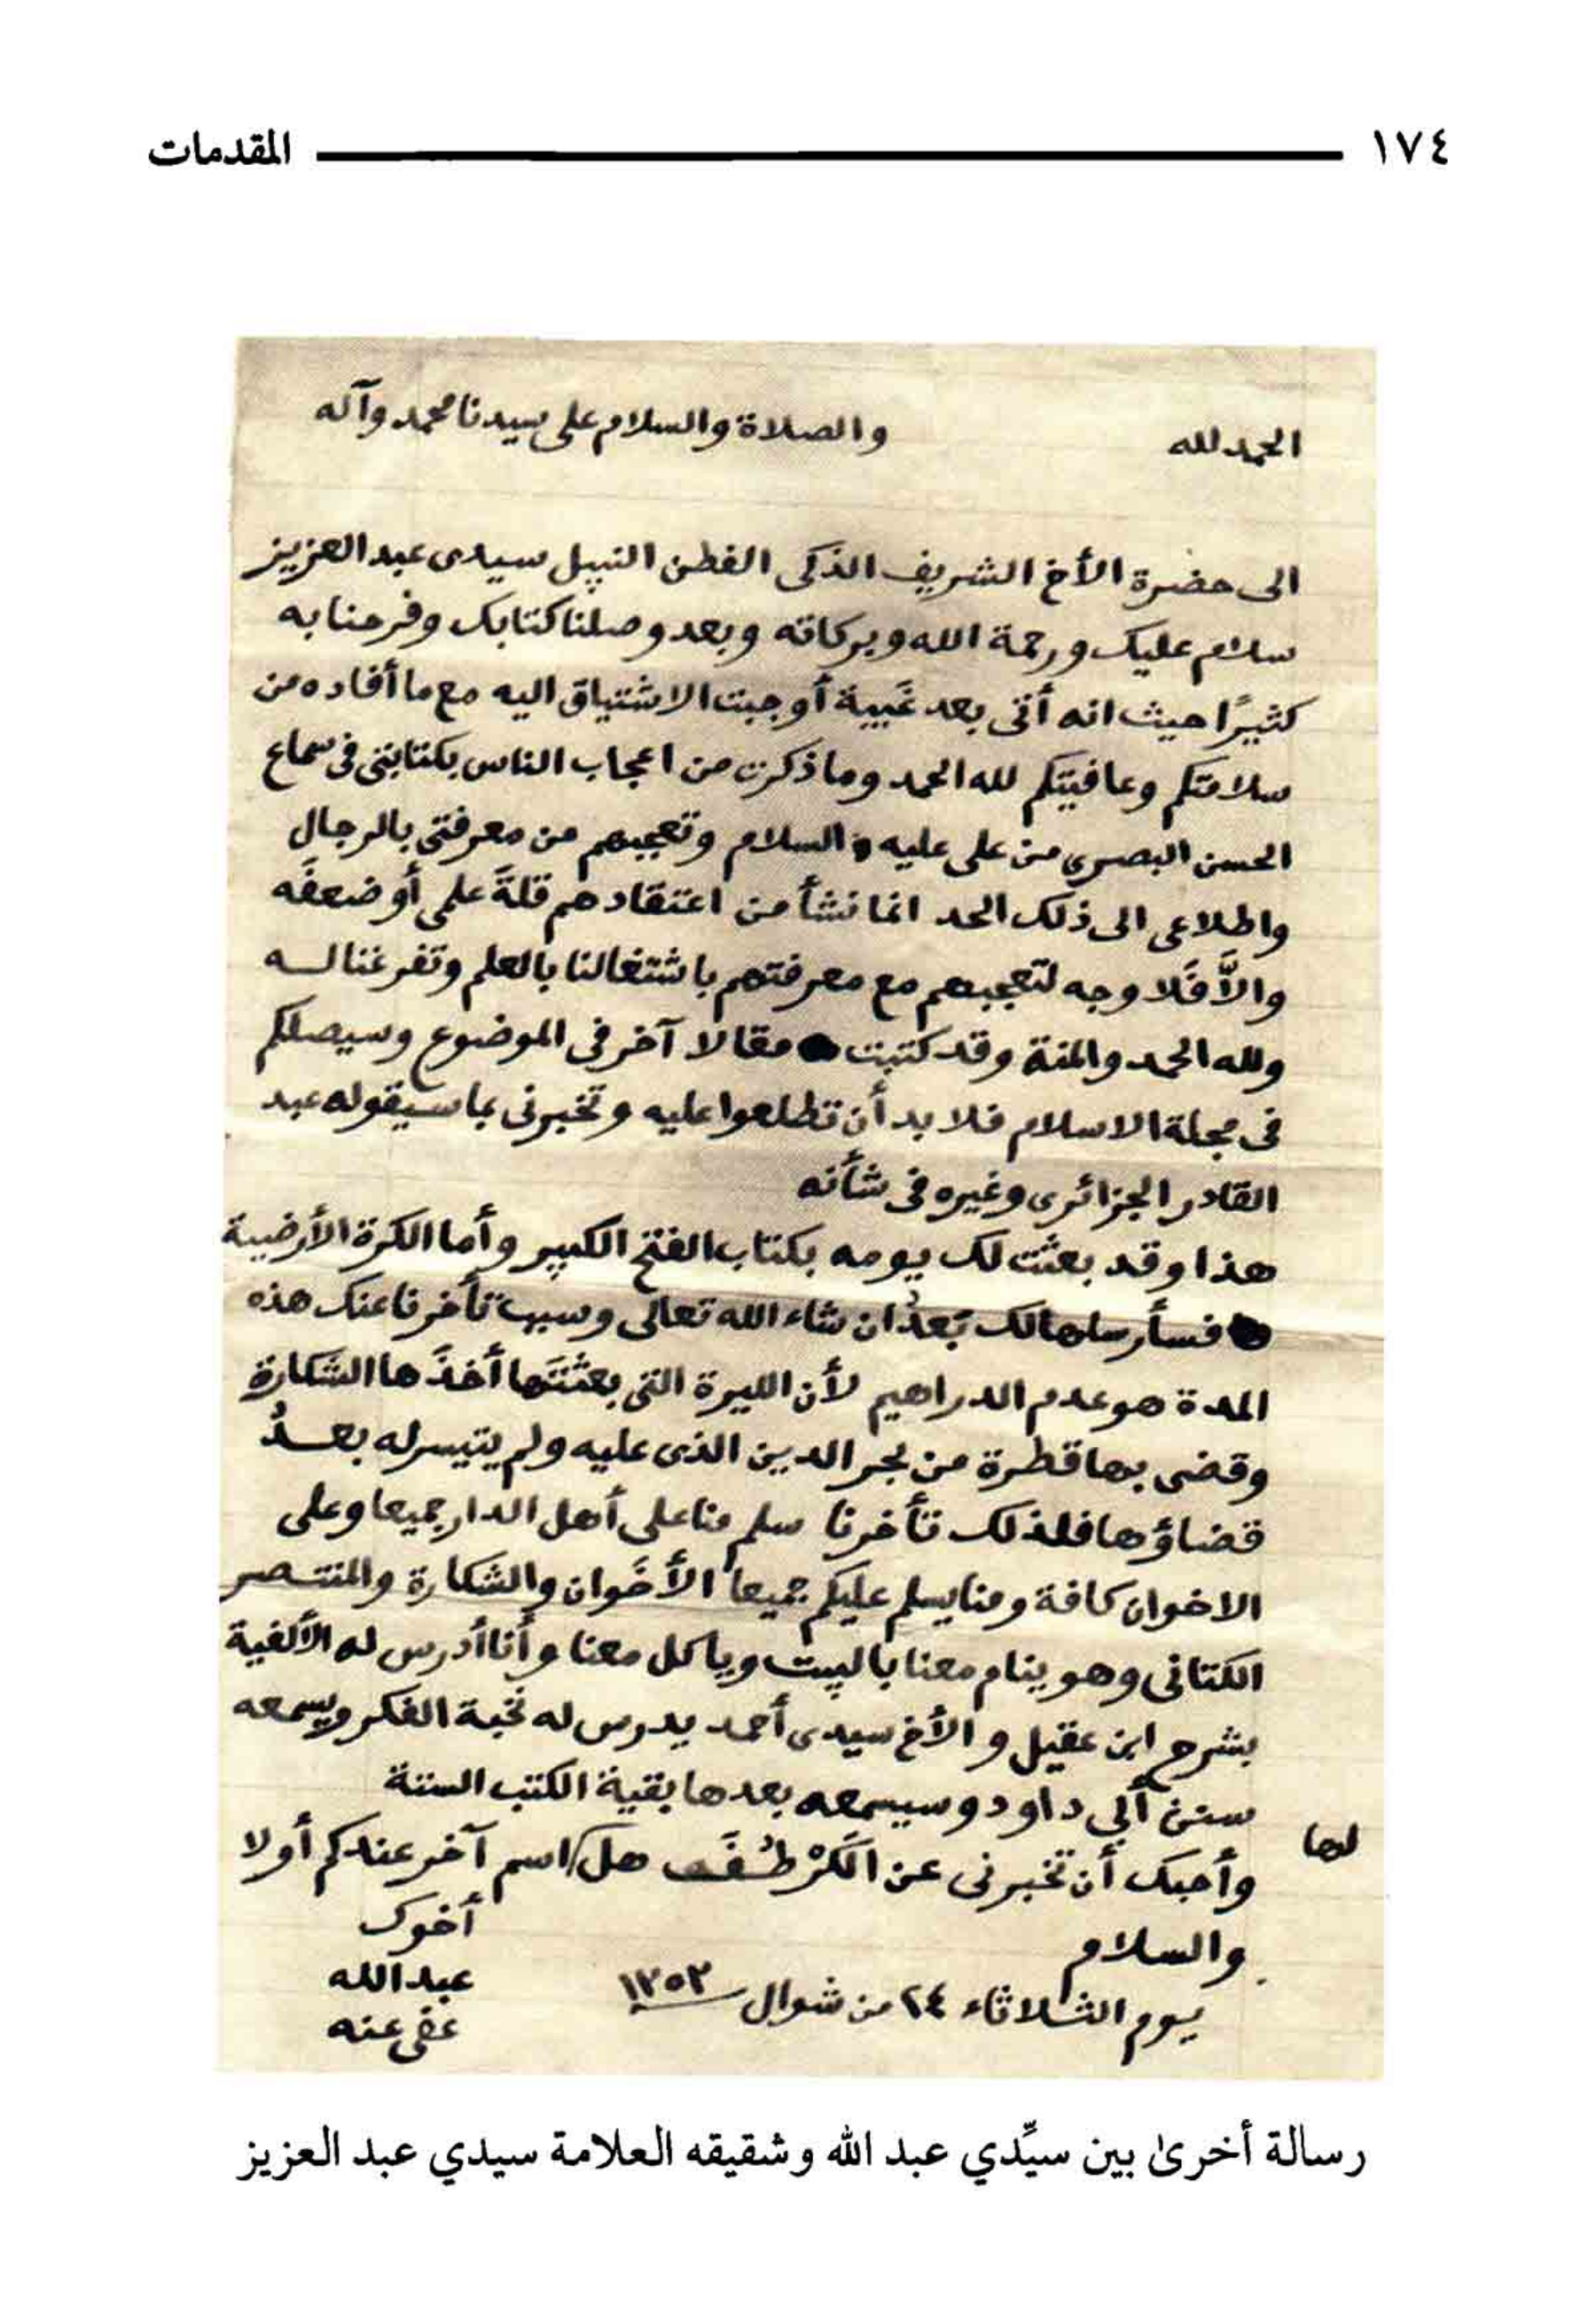 ١٧٤ المقدمات
الحمد لله والصلاة والسلام على سيدنا محمد وآله
الى حضرة الأخ الشريف الذكى الفطن النبيل سيدى عبد العزيز
سلام عليك ورحمة الله وبركاته وبعد وصلنا كتابك وفرحنا به
كثيرًا حيث انه أتى بعد غَيبة أوجبت الاشتياق اليه مع ما أفاده من
سلامتكم وعافيتكم لله الحمد وما ذكرت من اعجاب الناس بكتابتى فى سماع
الحسن البصرى من على عليه السلام وتعجبهم من معرفتى بالرجال
واطلاعى الى ذلك الحد انما نشأ من اعتقادهم قلةَ علمى أو ضعفَه
والاَّ فَلا وجه لتعجبهم مع معرفتهم باشتغالنا بالعلم وتفرغنا لــه
ولله الحمد والمنة وقد كتبت مقالا آخر فى الموضوع وسيصلكم
فى مجلة الاسلام فلا بد أن تطلعوا عليه وتخبرنى بما سيقوله عبد
القادر الجزائرى وغيره فى شأنه
هذا وقد بعثت لك يومه بكتاب الفتح الكبير وأما الكرة الأرضية
فسأرسلها لك بَعدُ ان شاء الله تعالى وسبب تأخرنا عنك هذه
المدة هو عدم الدراهيم لأن الليرة التى بعثتَها أخذَها الشكارة
وقضى بها قطرة من بحر الدين الذى عليه ولم يتيسر له بعــدُ
قضاؤها فلذلك تأخرنا سلم منا على أهل الدار جميعا وعلى
الاخوان كافة ومنا يسلم عليكم جميعا الأخَوان والشكارة والمنتـصر
الكتانى وهو ينام معنا بالبيت وياكل معنا وأنا أدرس له الألفية
بشرح ابن عقيل والأخ سيدى أحمد يدرس له نخبة الفكر ويسمعه
سنن أبي داود وسيسمعه بعدها بقية الكتب الستة
وأحبك أن تخبرنى عن الَكَرْطُـفَـه هل لها اسم آخر عندكم أولا
والسلام أخوك
يوم الثلاثاء ٢٤ من شوال ١٣٥٣ عبد الله
عفى عنه
رسالة أخرىٰ بين سيِّدي عبد الله وشقيقه العلامة سيدي عبد العزيز